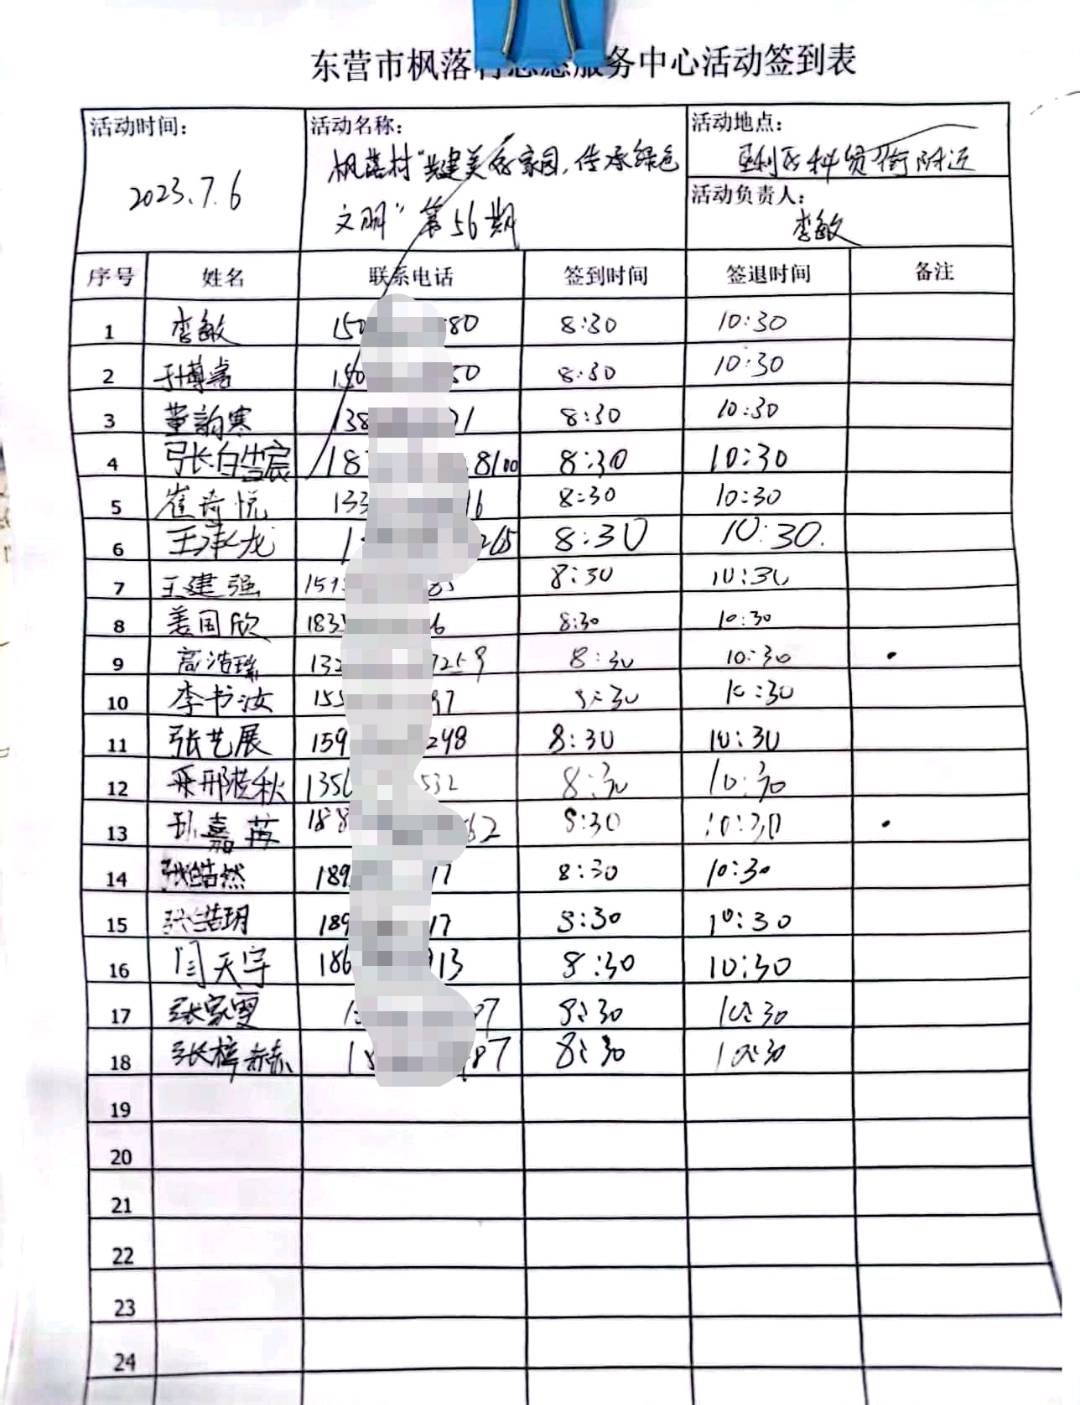 东营市枫落村志愿服务中心活动签到表
活动时间: 2023.7.6
活动名称: 枫落村"共建美好家园,传承绿色
文明"第56期
活动地点: 垦利区科贸街附近
活动负责人: 李敏
序号 姓名 联系电话 签到时间 签退时间 备注
1 李敏 150 80 8:30 10:30
2 于博嘉 150 50 8:30 10:30
3 董韵寒 138 21 8:30 10:30
4 张白雪宸 187 8100 8:30 10:30
5 崔琦悦 133 16 8:30 10:30
6 王泽龙 1 265 8:30 10:30.
7 王建强 159 8:30 10:30
8 姜国欣 183 6 8:30 10:30
9 高浩 132 7259 8:30 10:30
10 李书汝 155 97 8:30 10:30
11 张艺展 159 298 8:30 10:30
12 邢菀秋 1356 532 8:30 10:30
13 孙嘉苒 188 62 8:30 10:30
14 张皓然 189 17 8:30 10:30
15 张皓玥 189 17 8:30 10:30
16 闫天宇 186 913 8:30 10:30
17 张家雯 1 97 8:30 10:30
18 张梓赫 18 87 8:30 10:30
19
20
21
22
23
24